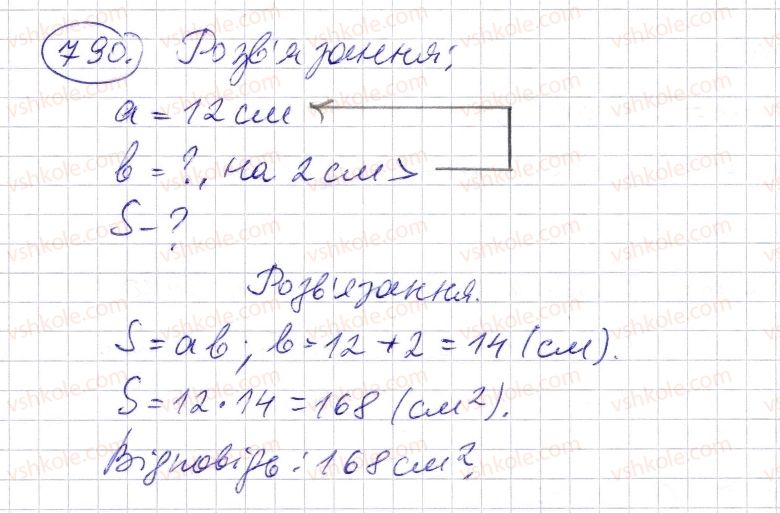 790. Розв'язання;
a = 12 см
b = ?, на 2 см >
S - ?
Розв'язання.
S = ab; b = 12 + 2 = 14 (см).
S = 12 · 14 = 168 (см²).
Відповідь: 168 см².